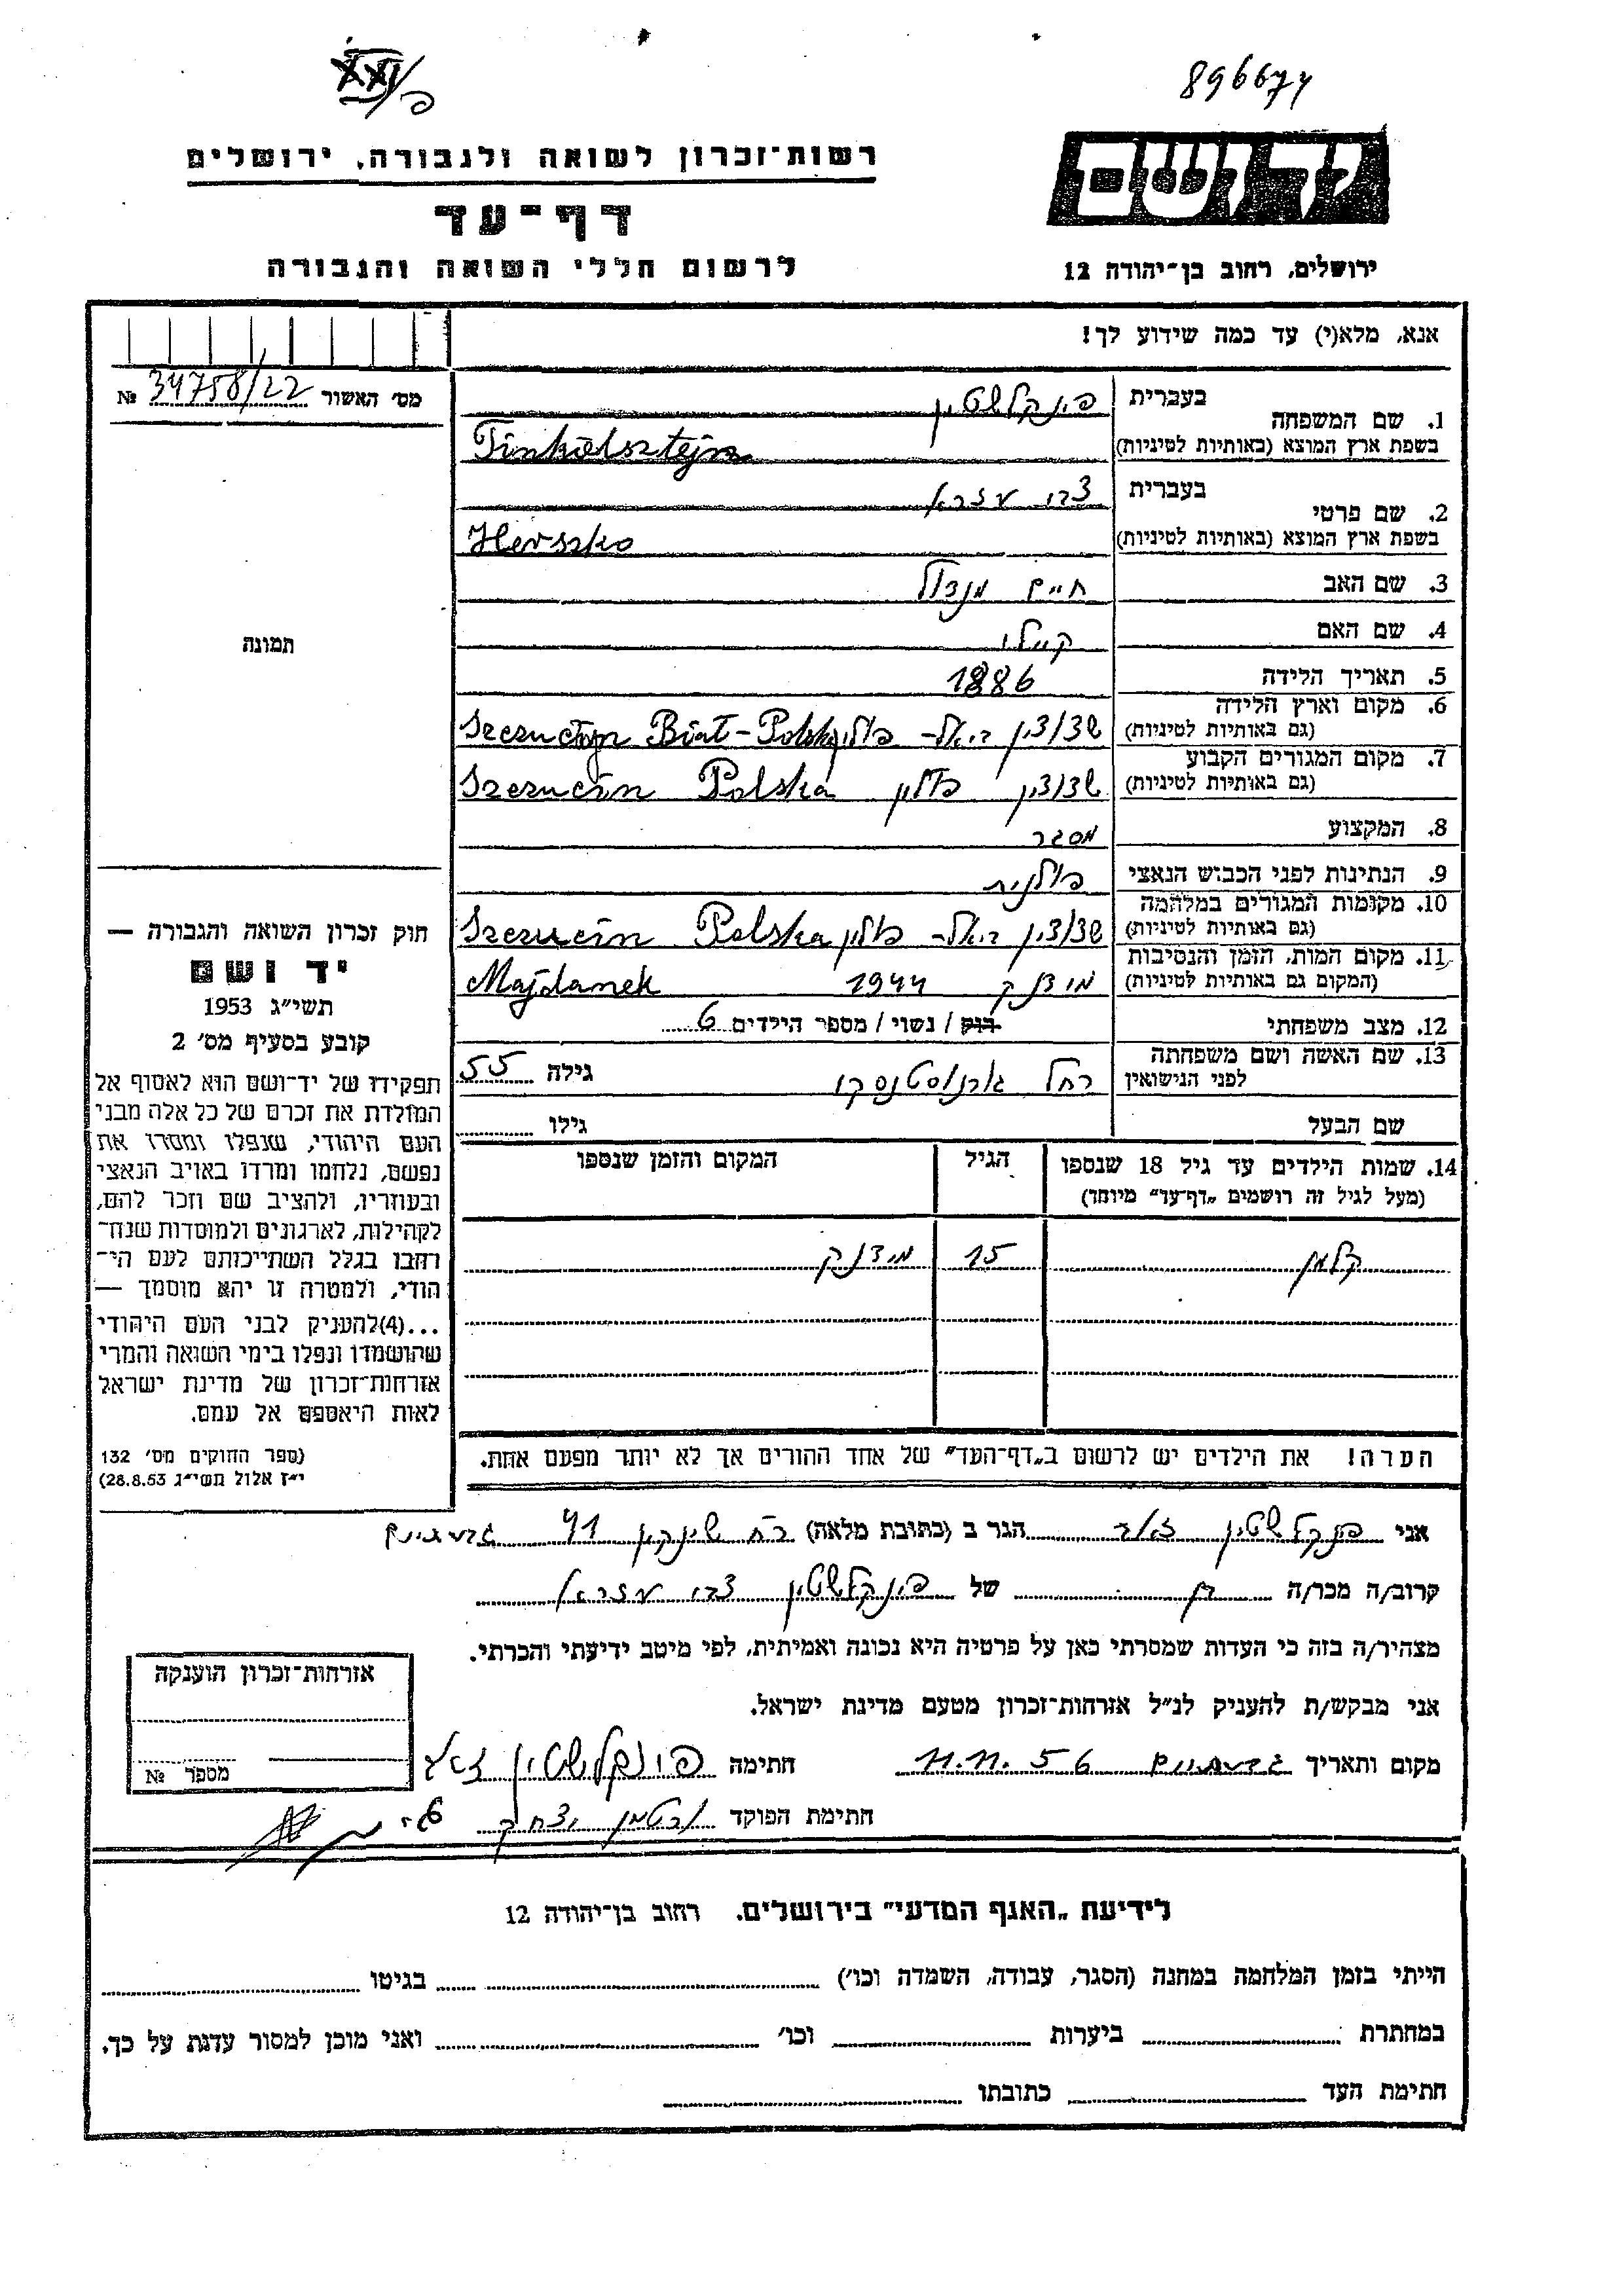 896674
רשות־זכרון לשואה ולגבורה, ירושלים
יד ושם
דף־עד
לרשום חללי השואה והגבורה
ירושלים, רחוב בן־יהודה 12
אנא, מלא(י) עד כמה שידוע לך!
מס׳ האשור 34758/22 №
1. שם המשפחה
בעברית פינקלשטין
בשפת ארץ המוצא (באותיות לטיניות) Finkelsztejn
2. שם פרטי
בעברית צבי עזרא
בשפת ארץ המוצא (באותיות לטיניות) Herszko
3. שם האב חיים מנדל
4. שם האם קיילי
5. תאריך הלידה 1886
6. מקום וארץ הלידה
(גם באותיות לטיניות) שצ׳וצ׳ין ביאל־ פולין Biał-Polska
7. מקום המגורים הקבוע
(גם באותיות לטיניות) שצ׳וצ׳ין פולין Szczucin Polska
8. המקצוע מסגר
9. הנתינות לפני הכבוש הנאצי פולנית
10. מקומות המגורים במלחמה
(גם באותיות לטיניות) שצ׳וצ׳ין ביאל־ פולין Szczucin Polska
11. מקום המות, הזמן והנסיבות
(המקום גם באותיות לטיניות) מידנק 1944 Majdanek
12. מצב משפחתי רוק / נשוי / מספר הילדים 6
13. שם האשה ושם משפחתה
לפני הנישואין רחל גילה 55
שם הבעל גילו
14. שמות הילדים עד גיל 18 שנספו הגיל המקום והזמן שנספו
(מעל לגיל זה רושמים „דף־עד״ מיוחד)
קלמן 15 מידנק
הערה! את הילדים יש לרשום ב„דף־העד״ של אחד ההורים אך לא יותר מפעם אחת.
תמונה
חוק זכרון השואה והגבורה —
יד ושם
תשי״ג 1953
קובע בסעיף מס׳ 2
תפקידו של יד־ושם הוא לאסוף אל
המולדת את זכרם של כל אלה מבני
העם היהודי, שנפלו ומסרו את
נפשם, נלחמו ומרדו באויב הנאצי
ובעוזריו, ולהציב שם וזכר להם,
לקהילות, לארגונים ולמוסדות שנח־
רבו בגלל השתייכותם לעם הי־
הודי, ולמטרה זו יהא מוסמך —
...(4)להעניק לבני העם היהודי
שהושמדו ונפלו בימי השואה והמרי
אזרחות־זכרון של מדינת ישראל
לאות היאספם אל עמם.
(ספר החוקים מס׳ 132
י״ז אלול תשי״ג 28.8.53)
אני פינקלשטין זאב הגר ב (כתובת מלאה) רח שינקין 41 גבעתיים
קרוב/ה מכר/ה בן של פינקלשטין צבי עזרא
מצהיר/ה בזה כי העדות שמסרתי כאן על פרטיה היא נכונה ואמיתית, לפי מיטב ידיעתי והכרתי.
אני מבקש/ת להעניק לנ״ל אזרחות־זכרון מטעם מדינת ישראל.
מקום ותאריך גבעתיים 11.11.56 חתימה פינקלשטין זאב
חתימת הפוקד יצחק
אזרחות־זכרון הוענקה
מספר №
לידיעת „האגף המדעי״ בירושלים, רחוב בן־יהודה 12
הייתי בזמן המלחמה במחנה (הסגר, עבודה, השמדה וכו׳) בגיטו
במחתרת ביערות וכו׳ ואני מוכן למסור עדות על כך.
חתימת העד כתובתו